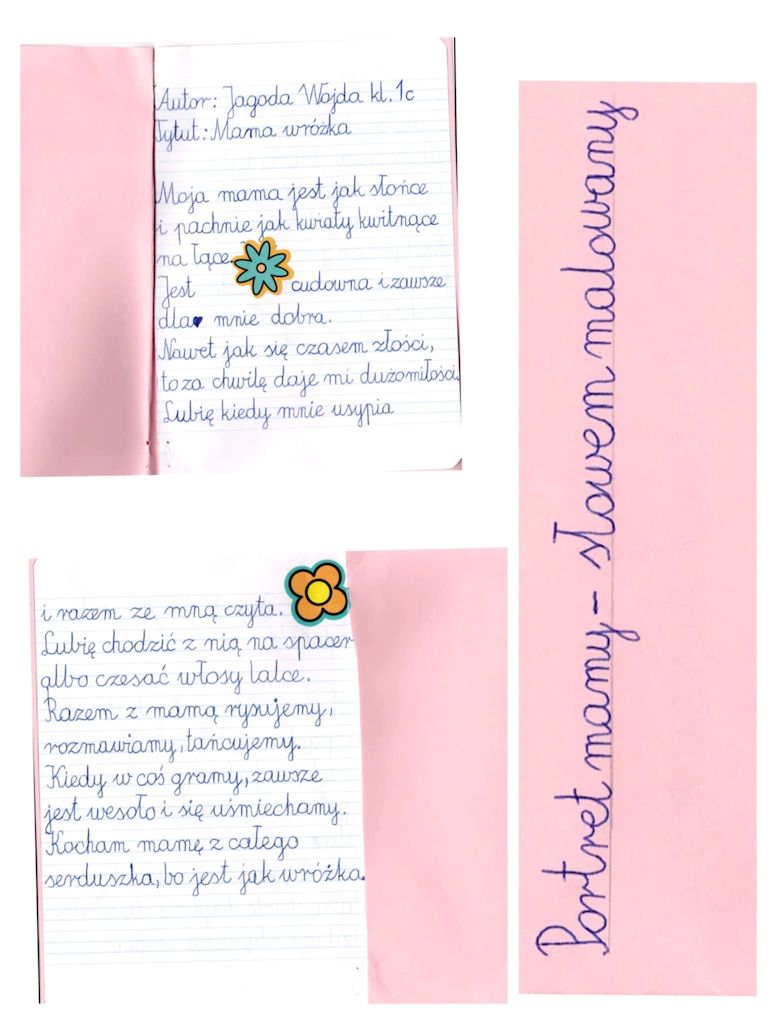 Autor: Jagoda Wojda kl. 1c
Tytuł: Mama wróżka
Moja mama jest jak słońce
i pachnie jak kwiaty kwitnące
na łące.
Jest cudowna i zawsze
dla mnie dobra.
Nawet jak się czasem złości,
to za chwilę daje mi dużo miłości.
Lubię kiedy mnie usypia
i razem ze mną czyta.
Lubię chodzić z nią na spacer
albo czesać włosy lalce.
Razem z mamą rysujemy,
rozmawiamy, tańcujemy.
Kiedy w coś gramy, zawsze
jest wesoło i się uśmiechamy.
Kocham mamę z całego
serduszka, bo jest jak wróżka.
Portret mamy – słowem malowany